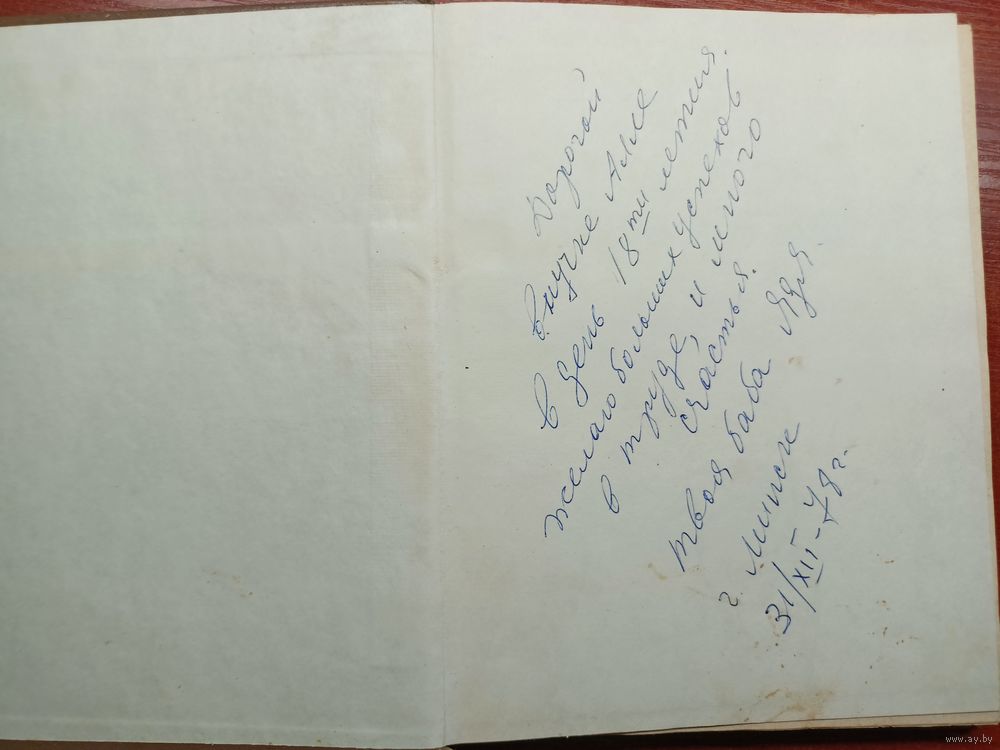 Дорогой
внучке Алле
в день 18ти летия.
желаю больших успехов
в труде, и много
счастья.
твоя баба Ядя.
г. Минск
31/XII-78г.
www.ay.by